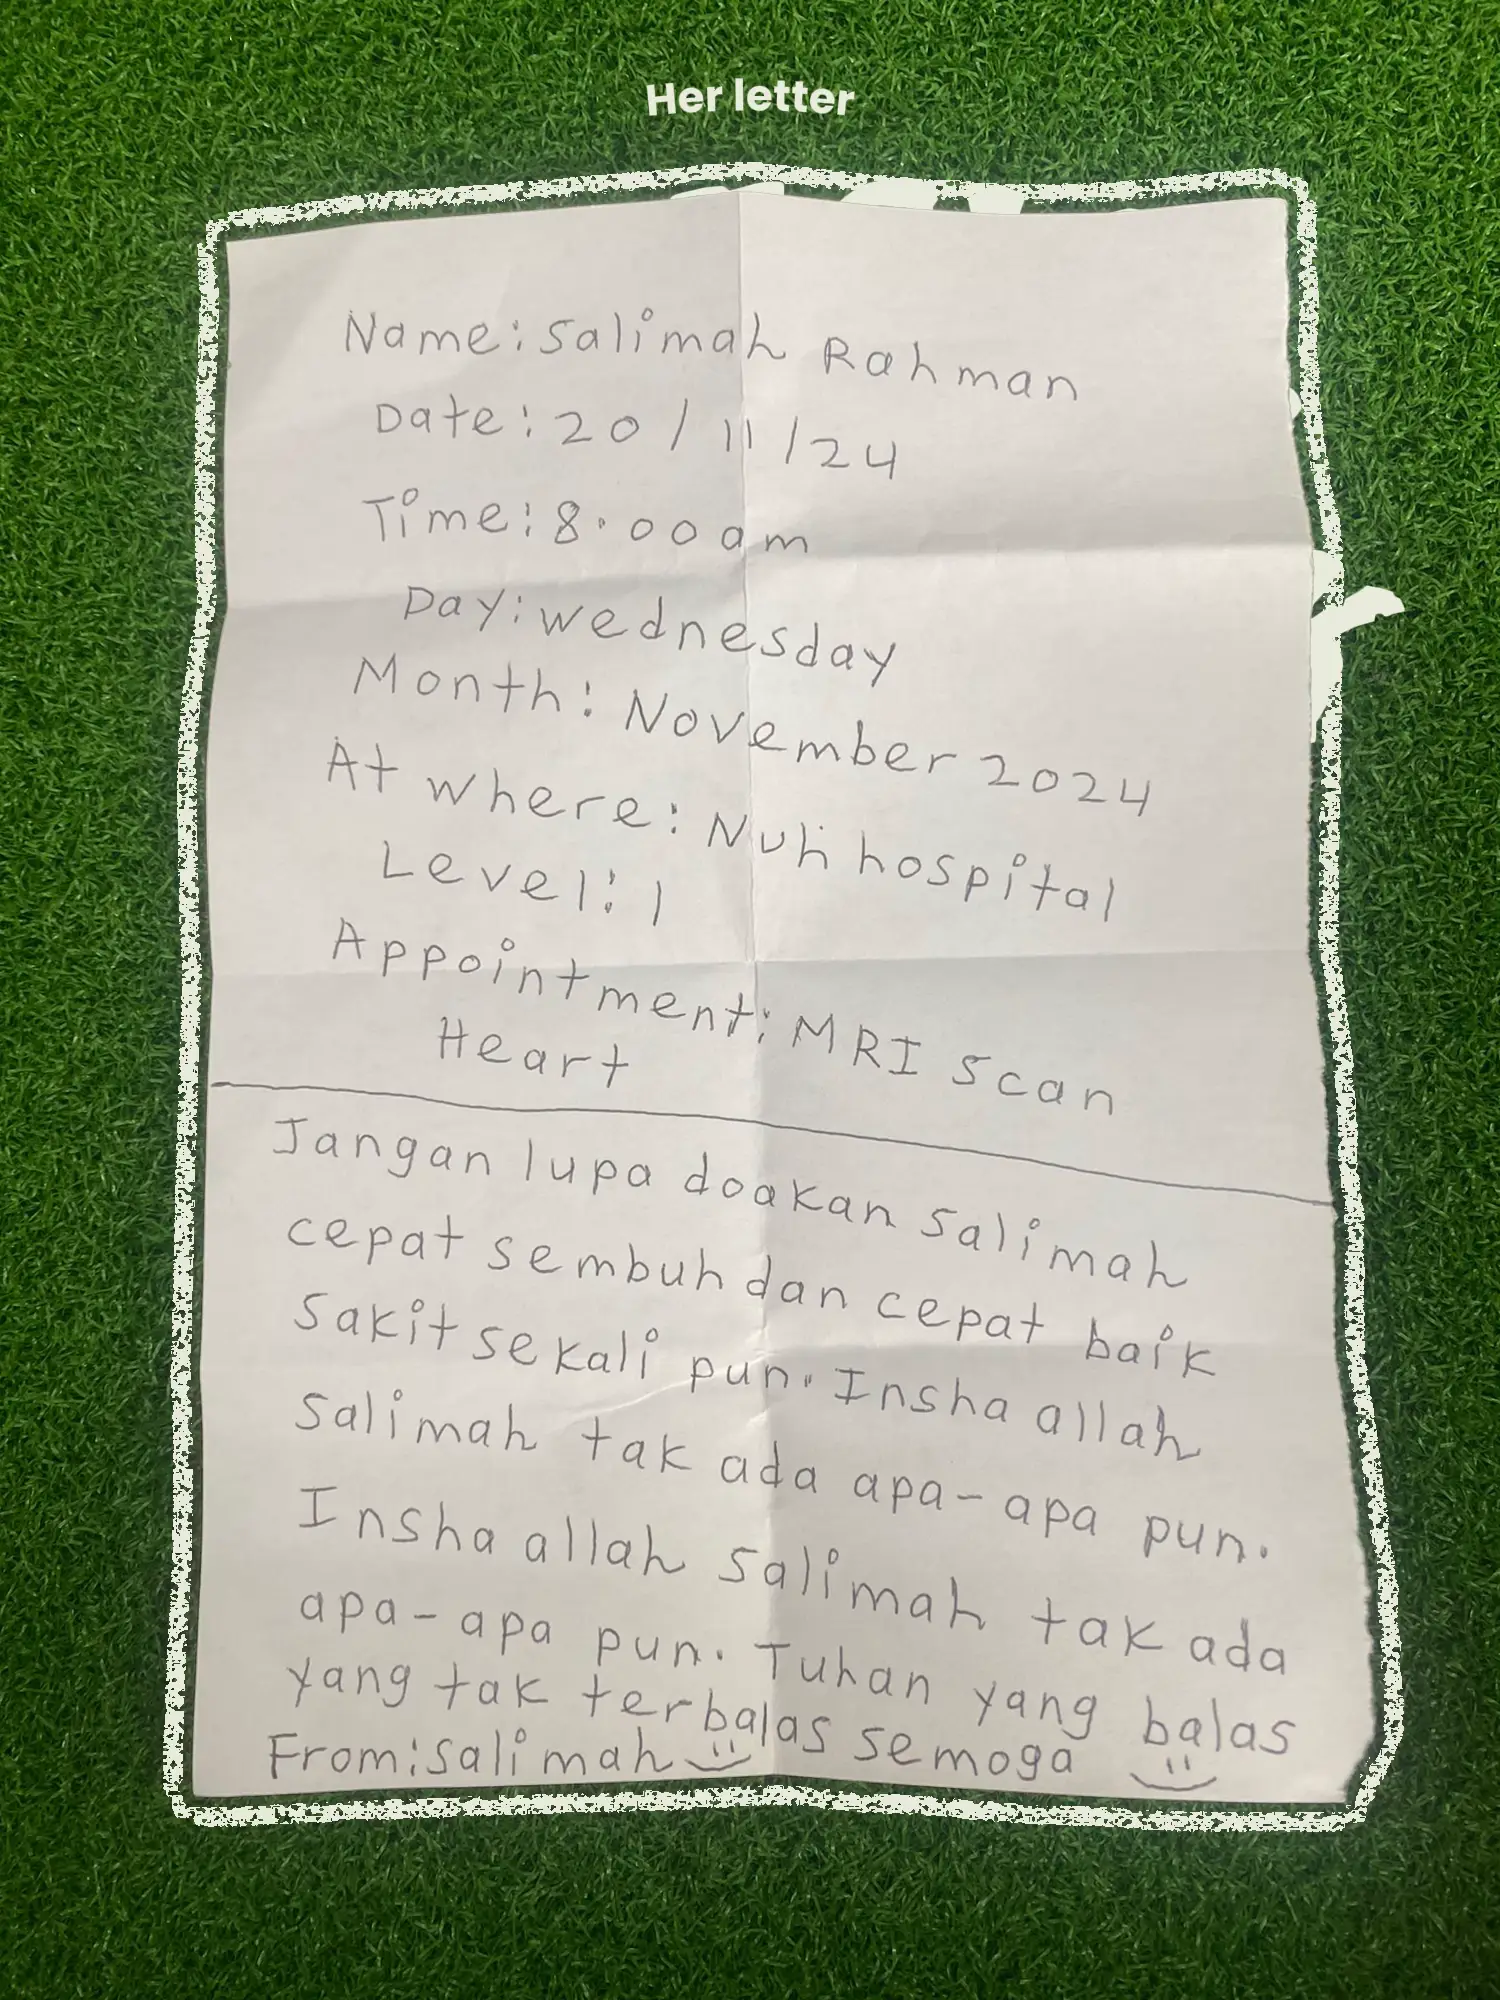 Her letter
Name: Salimah Rahman
Date: 20/11/24
Time: 8.00am
Day: wednesday
Month: November 2024
At where: Nuh hospital
Level: 1
Appointment: MRI scan
Heart
Jangan lupa doakan salimah
cepat sembuh dan cepat baik
sakit sekali pun. Insha allah
salimah tak ada apa-apa pun.
Insha allah salimah tak ada
apa-apa pun. Tuhan yang balas
yang tak terbalas semoga
From: salimah